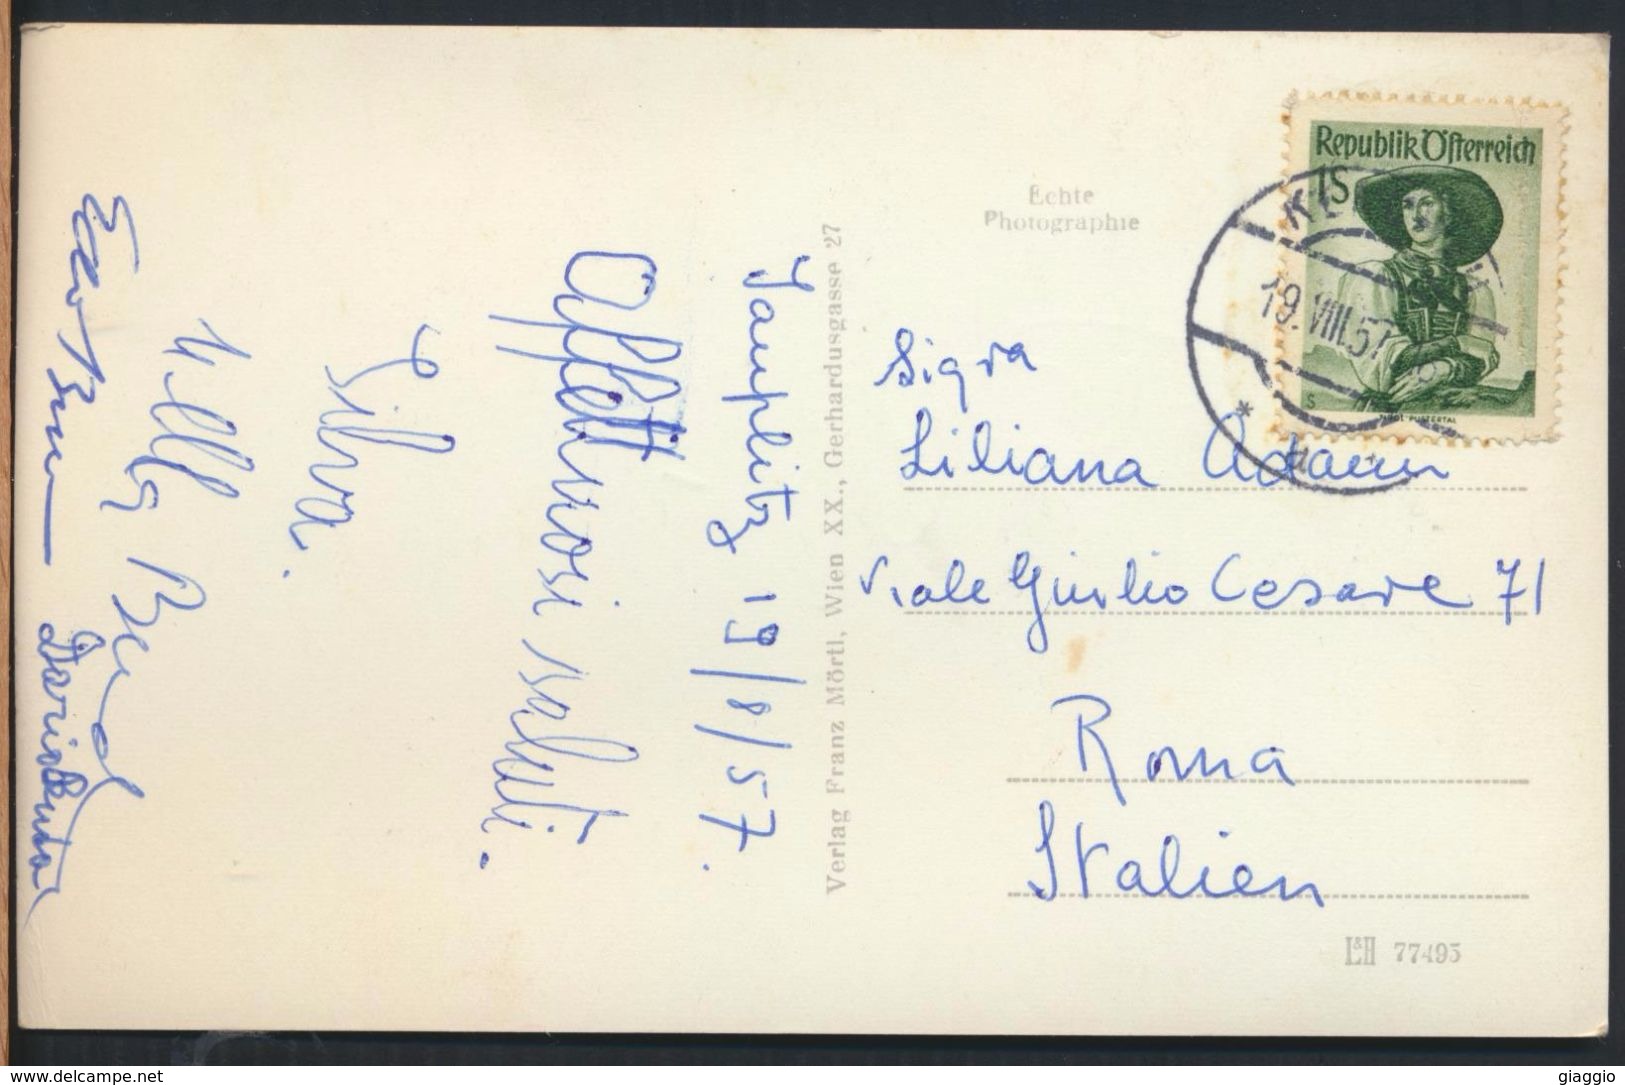 Tauplitz 19/8/57.
Affettuosi saluti.
Silva.
Echte
Photographie
Verlag Franz Mörtl, Wien XX., Gerhardusgasse 27
Republik Österreich
1S
TIROL PUSTERTAL
S
19.VIII.57
Sigra
Liliana
Viale Giulio Cesare 71
Roma
Italien
L&H 77495
delcampe.net
giaggio